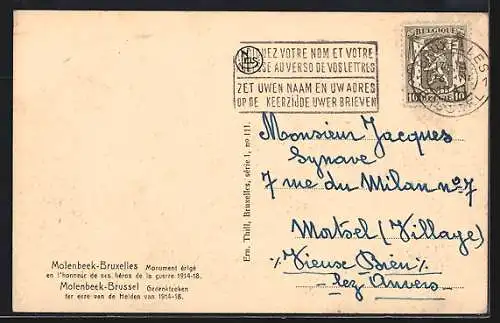 INDIQUEZ VOTRE NOM ET VOTRE
ADRESSE AU VERSO DE VOS LETTRES
ZET UWEN NAAM EN UW ADRES
OP DE KEERZIJDE UWER BRIEVEN
BELGIQUE
10 10
Monsieur Jacques
Synave
7 rue du Milan no 7
Mortsel (Village)
% Vieuse Dien %
-lez Anvers-
Ern. Thill, Bruxelles, série 1, no 111.
Molenbeek-Bruxelles Monument érigé
en l'honneur de ses héros de la guerre 1914-18.
Molenbeek-Brussel Gedenkteeken
ter eere van de Helden van 1914-18.